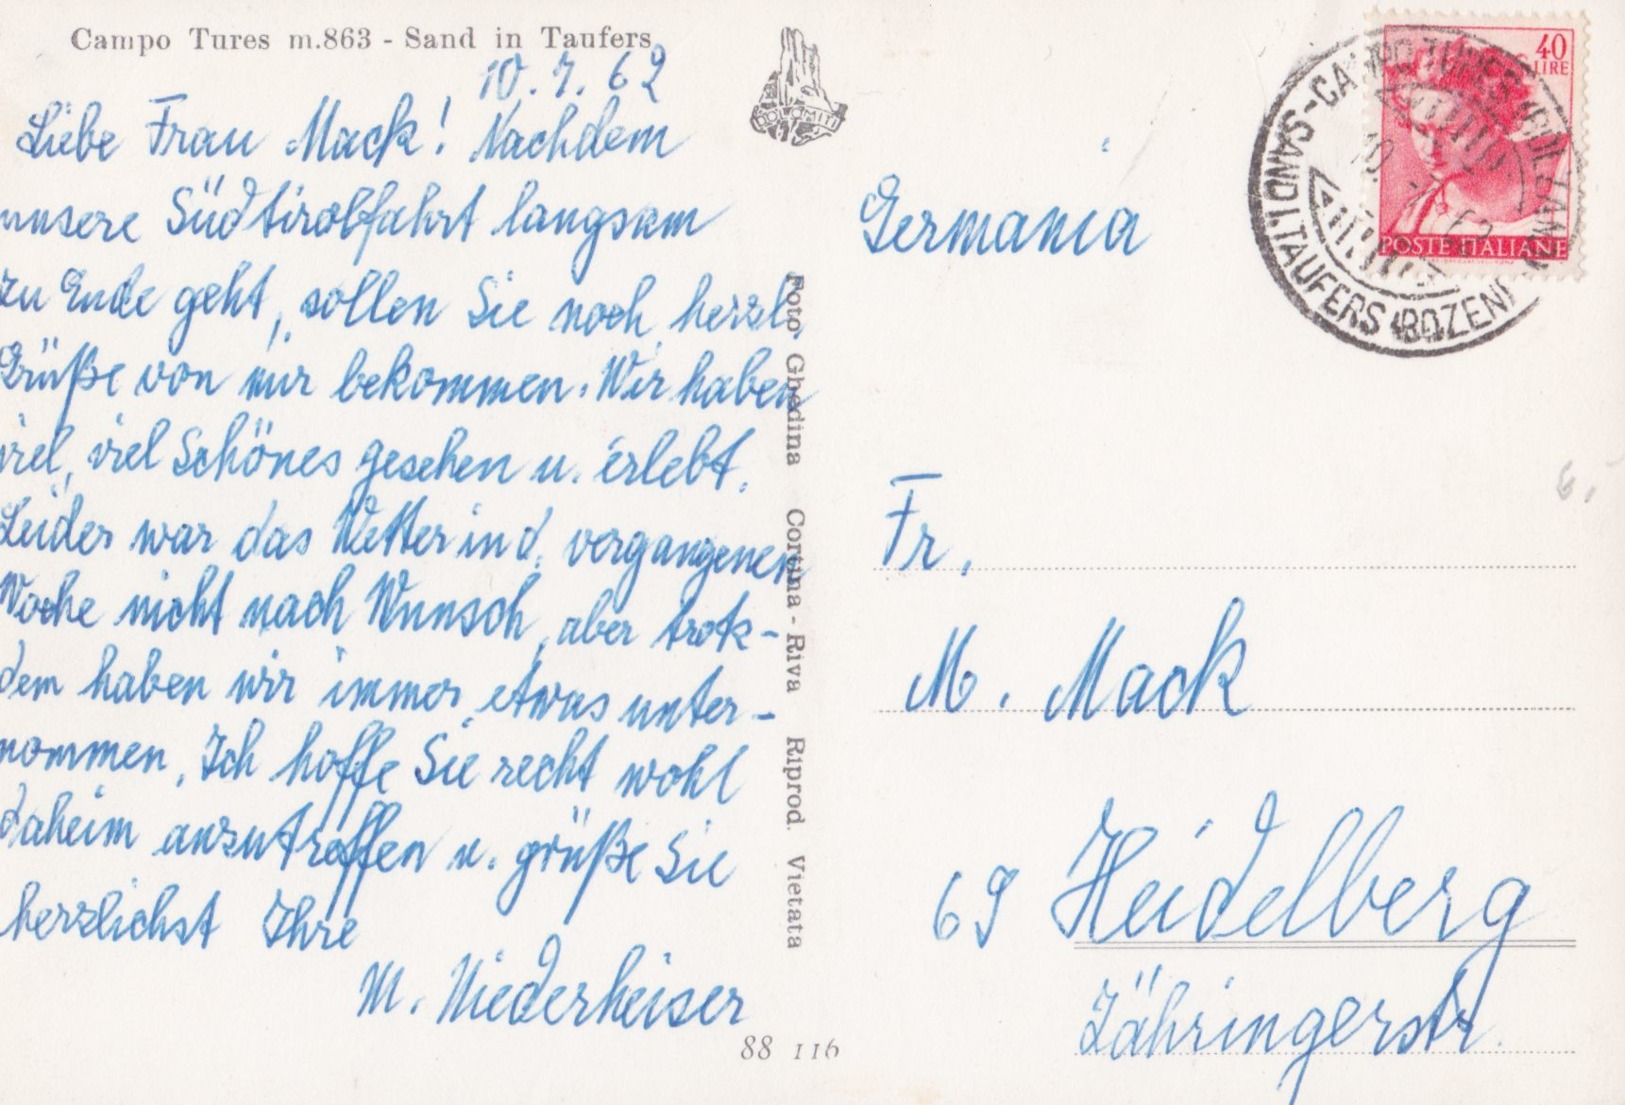 Campo Tures m.863 - Sand in Taufers
10.7.62
Liebe Frau Mack! Nachdem
unsere Südtirolfahrt langsam
zu Ende geht, sollen Sie noch herzl.
Grüße von mir bekommen. Wir haben
viel, viel Schönes gesehen u. erlebt.
Leider war das Wetter in d. vergangenen
Woche nicht nach Wunsch, aber trotz-
dem haben wir immer etwas unter-
nommen. Ich hoffe Sie recht wohl
daheim anzutreffen u. grüße Sie
herzlichst Ihre
M. Niederheiser
DOLOMITI
Foto Ghedina Cortina - Riva Riprod. Vietata
88 116
40
LIRE
POSTE ITALIANE
SAND I TAUFERS (BOZEN) - CAMPO TURES (BOLZANO)
10.7.62
Germania
Fr.
M. Mack
69 Heidelberg
Zähringerstr.
6.